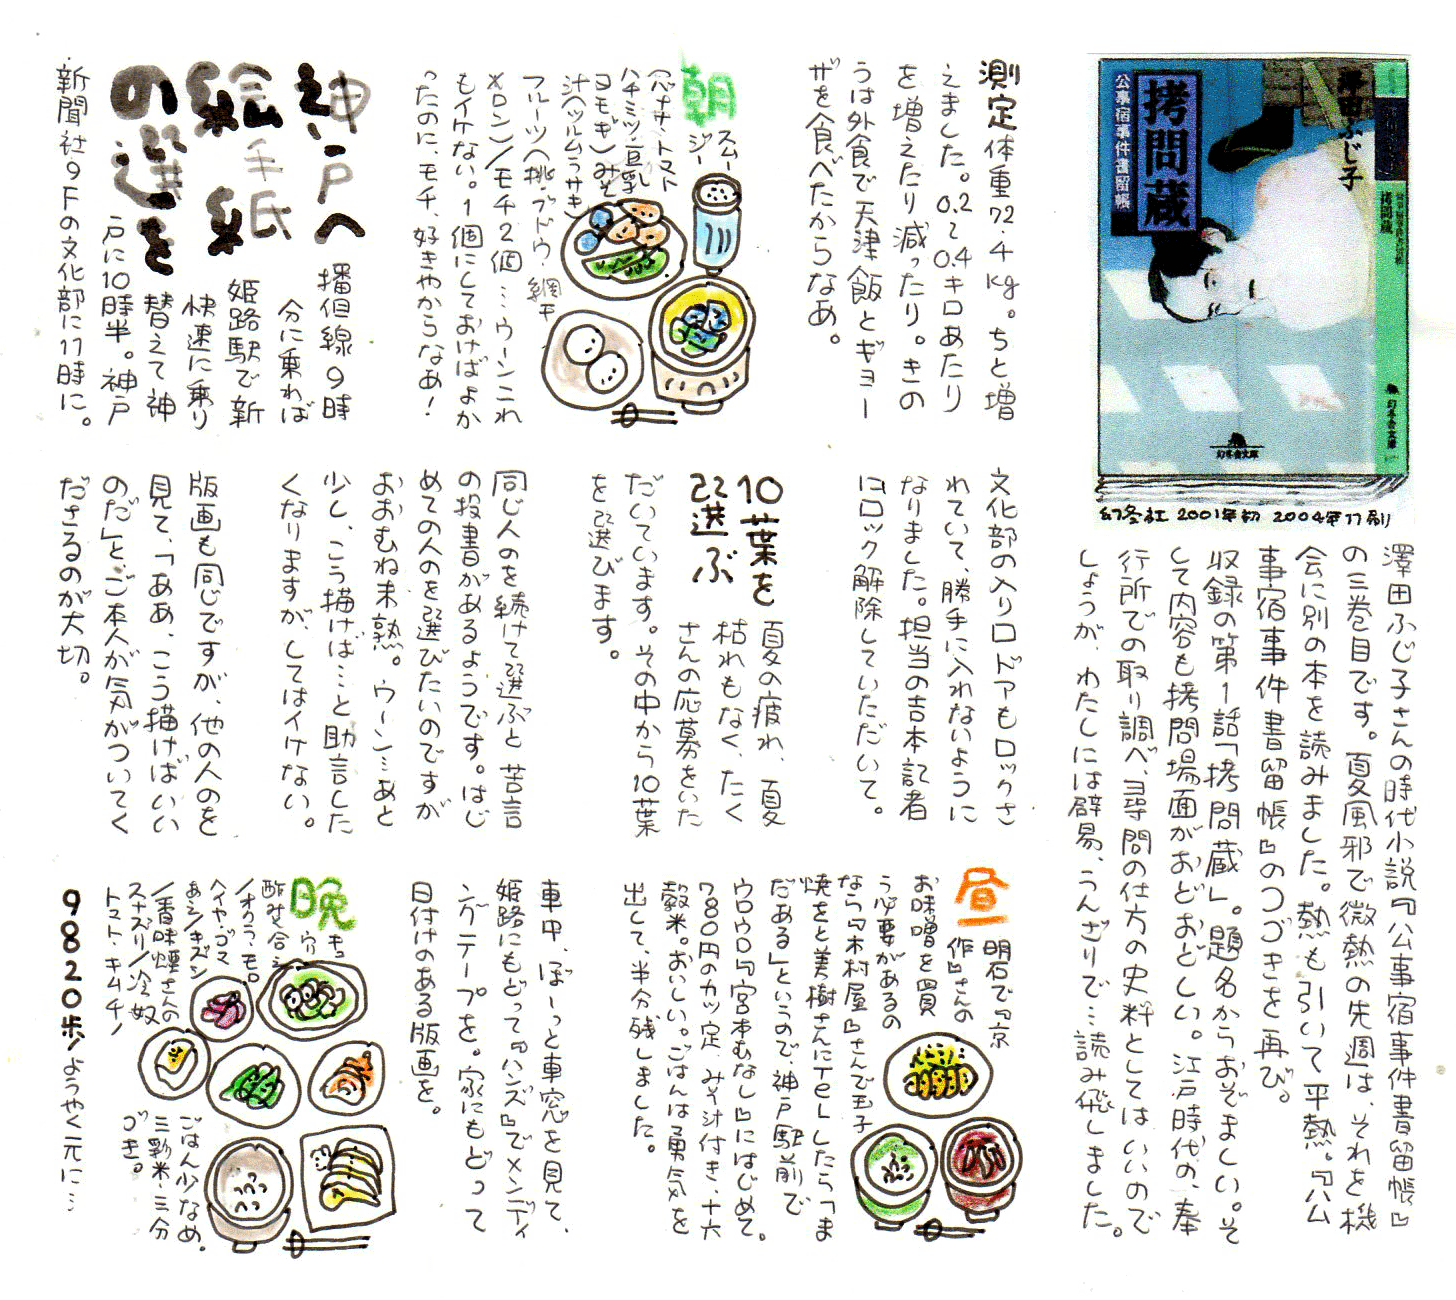 澤田ふじ子
拷問蔵
公事宿事件書留帳
幻冬舎文庫
幻冬社 2001年初 2004年11刷
澤田ふじ子さんの時代小説『公事宿事件書留帳』
の三巻目です。夏風邪で微熱の先週は、それを機
会に別の本を読みました。熱も引いて平熱。『公
事宿事件書留帳』のつづきを再び。
収録の第1話「拷問蔵」。題名からおぞましい。そ
して内容も拷問場面がおどおどしい。江戸時代の、奉
行所での取り調べ、尋問の仕方の史料としてはいいので
しょうが、わたしには辟易、うんざりで…読み飛しました。
測定 体重72.4kg。ちと増
えました。0.2〜0.4キロあたり
を増えたり減ったり。きの
うは外食で天津飯とギョー
ザを食べたからなあ。
朝
スムー
ジー
(バナナ・トマト
ハチミツ・豆乳
ヨモギ)みそ
汁(ツルムラサキ)
フルーツ(桃・ブドウ・網干
メロン)/モチ2個…ウーンこれ
もイケない。1個にしておけばよか
ったのに、モチ、好きやからなあ!
神戸へ
絵手紙
の選を
播但線9時
分に乗れば
姫路駅で新
快速に乗り
替えて神
戸に10時半。神戸
新聞社9Fの文化部に11時に。
文化部の入り口ドアもロックさ
れていて、勝手に入れないように
なりました。担当の吉本記者
にロック解除していただいて。
10葉を
選ぶ
夏の疲れ、夏
枯れもなく、たく
さんの応募をいた
だいています。その中から10葉
を選びます。
同じ人のを続けて選ぶと苦言
の投書があるようです。はじ
めての人のを選びたいのですが
おおむね未熟。ウーン…あと
少し、こう描けば…と助言した
くなりますが、してはイけない。
版画も同じですが、他の人のを
見て、「ああ、こう描けばいい
のだ」とご本人が気がついてく
ださるのが大切。
昼
明石で『京
作』さんの
お味噌を買
う必要があるの
なら『木村屋』さんで玉子
焼をと美樹さんにTELしたら「ま
だある」というので、神戸駅前で
ウロウロ『宮本むなし』にはじめて。
780円のカツ定、みそ汁付き、十六
穀米。おいしい。ごはんは勇気を
出して、半分残しました。
車中、ぼーっと車窓を見て、
姫路にもどって『ハンズ』でメンディ
ングテープを。家にもどって
日付けのある版画を。
晩
キュ
穴
酢みそ合
/オクラ・モロ
ヘイヤ・ゴマ
あシ/キズシ
/香味煙さんの
スナズリ/冷奴
トマト・キムチ/
ごはん少なめ。
三彩米・三分
づき。
9820歩/ようやく元に…